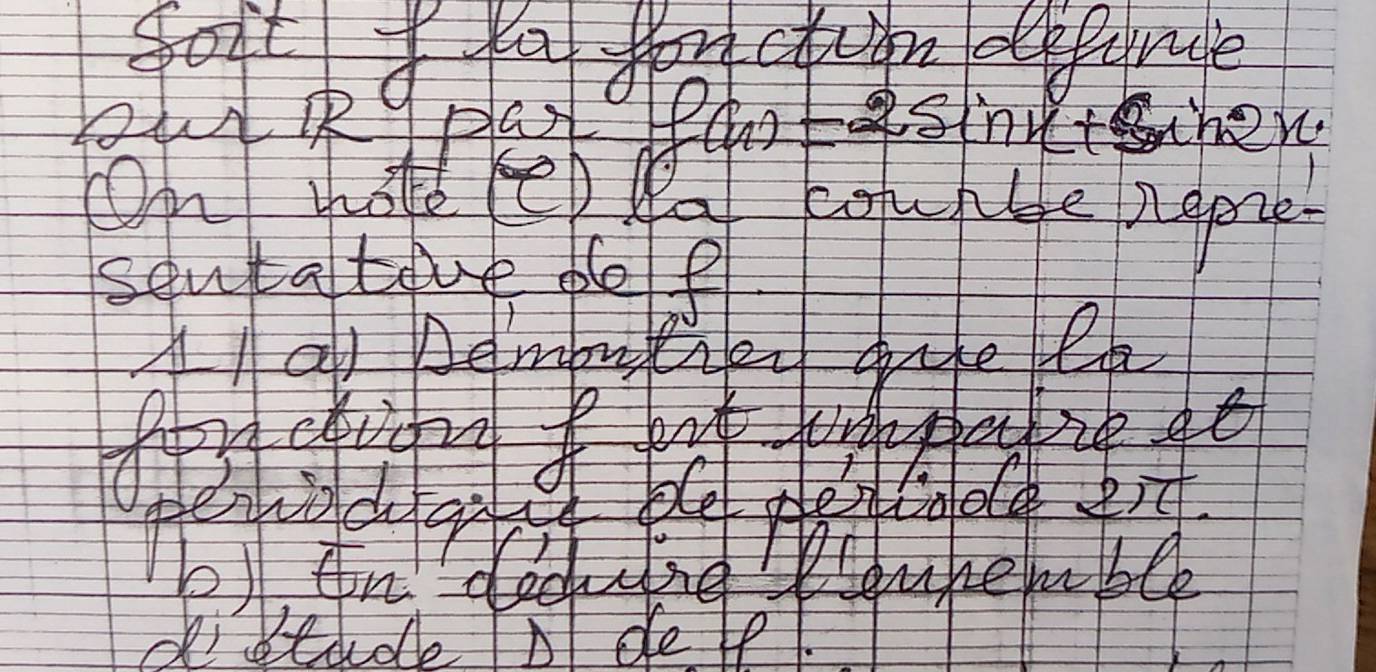 Soit f la fonction définie
sur ℝ par f(x) = 2 Sinx + Sin2x.
On note (C) la courbe repré-
sentative de f.
1/ a) Démontrer que la
fonction f est impaire et
périodique de période 2π.
b) En déduire l'ensemble
d'étude D de f.